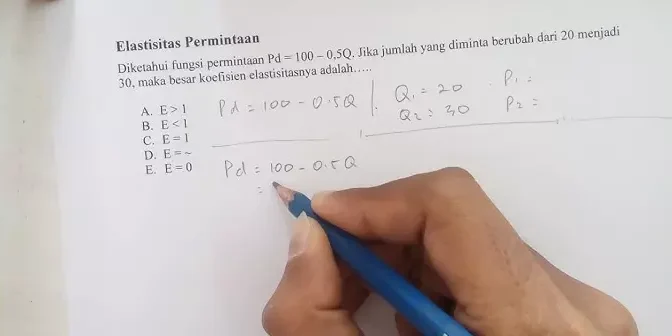 Elastisitas Permintaan
Diketahui fungsi permintaan Pd = 100 – 0,5Q. Jika jumlah yang diminta berubah dari 20 menjadi
30, maka besar koefisien elastisitasnya adalah…..
A. E > 1
B. E < 1
C. E = 1
D. E = ~
E. E = 0
Pd = 100 - 0.5Q
Q1 = 20 P1 =
Q2 = 30 P2 =
Pd = 100 - 0.5Q
=